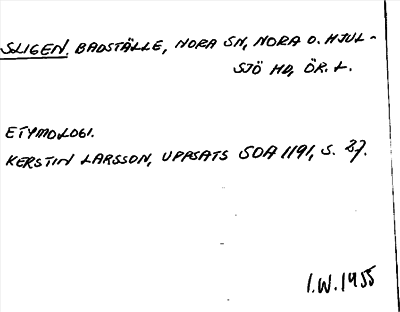 SLIGEN. BADSTÄLLE, NORA SN, NORA O. HJUL-
SJÖ HD, ÖR. L.
ETYMOLOGI.
KERSTIN LARSSON, UPPSATS SOA 1191, S. 37.
I.W. 1955